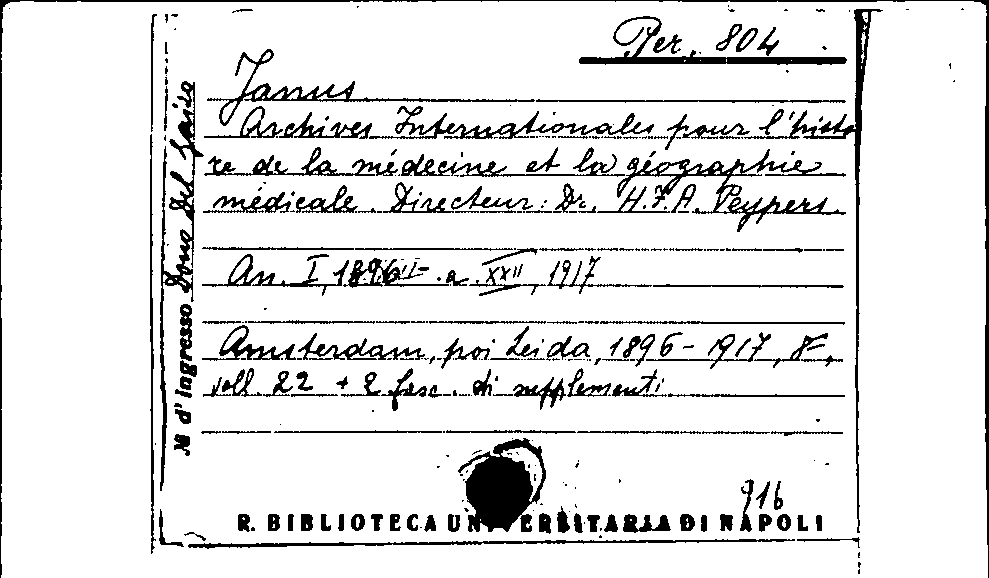 Per. 804
Janus
Archives Internationales pour l'histo
re de la médecine et la géographie
médicale. Directeur: Dr. H.F.A. Peypers.
An. I, 1896 - a. XXII, 1917
Amsterdam, poi Leida, 1896-1917, 8°,
voll. 22 + 2 fasc. di supplementi
916
R. BIBLIOTECA UNIVERSITARIA DI NAPOLI
N d'ingresso Dono Del